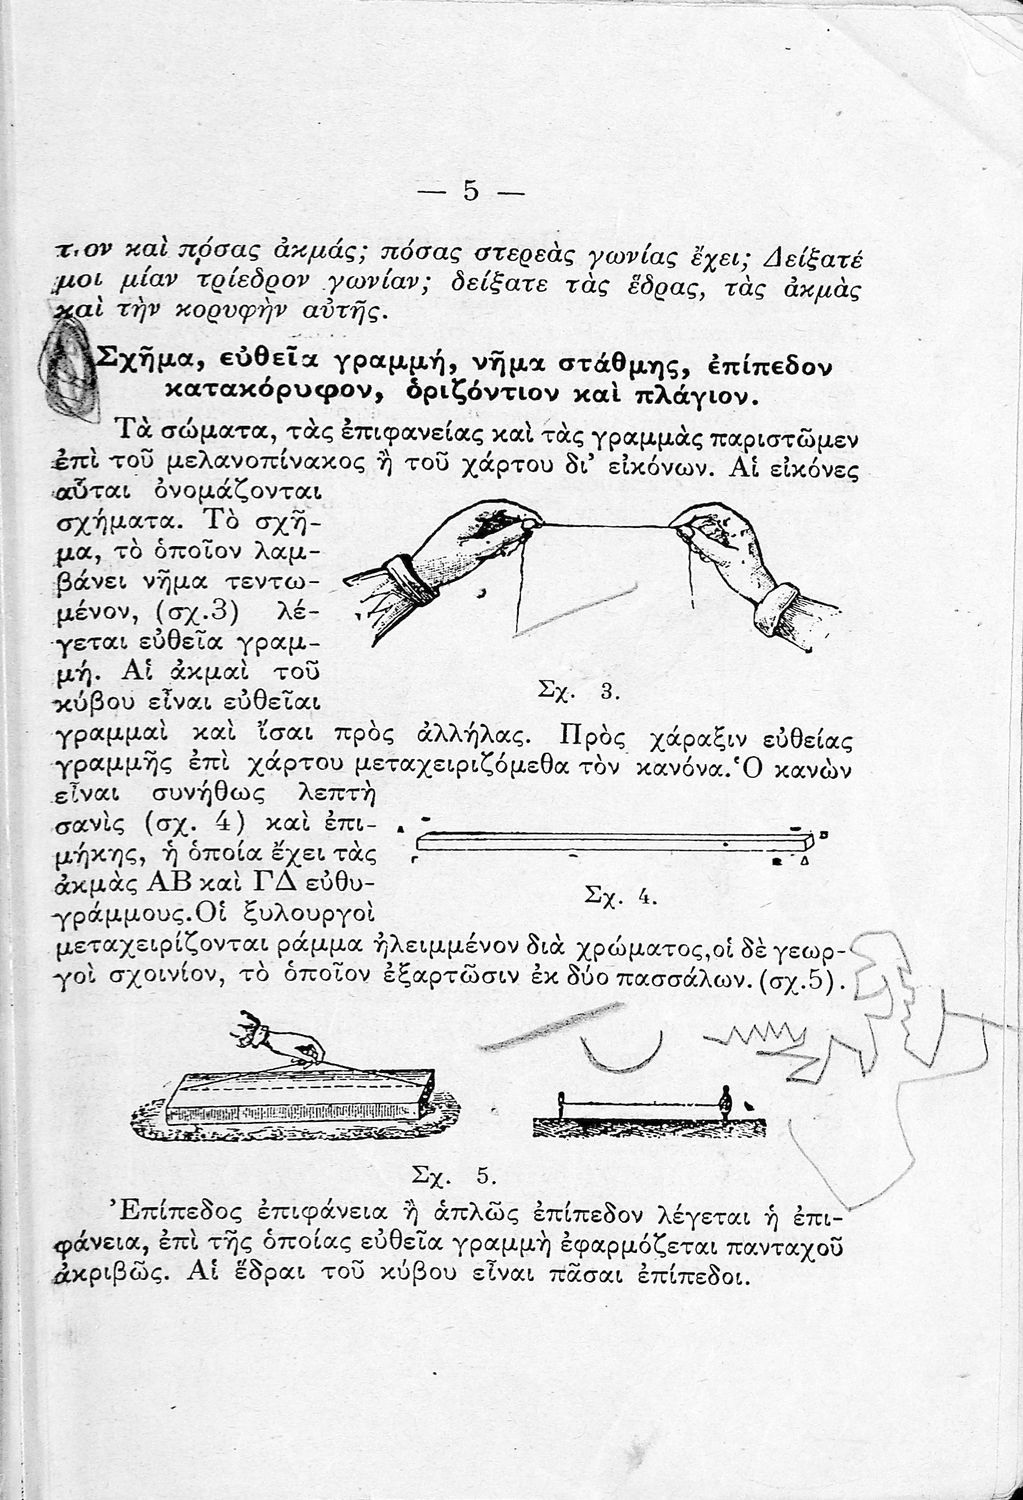 — 5 —
τ.ον καὶ πόσας ἀκμάς; πόσας στερεὰς γωνίας ἔχει; Δείξατέ
μοι μίαν τρίεδρον γωνίαν; δείξατε τὰς ἕδρας, τὰς ἀκμὰς
καὶ τὴν κορυφὴν αὐτῆς.
Σχῆμα, εὐθεῖα γραμμή, νῆμα στάθμης, ἐπίπεδον
κατακόρυφον, ὁριζόντιον καὶ πλάγιον.
Τὰ σώματα, τὰς ἐπιφανείας καὶ τὰς γραμμὰς παριστῶμεν
ἐπὶ τοῦ μελανοπίνακος ἢ τοῦ χάρτου δι’ εἰκόνων. Αἱ εἰκόνες
αὗται ὀνομάζονται
σχήματα. Τὸ σχῆ-
μα, τὸ ὁποῖον λαμ-
βάνει νῆμα τεντω-
μένον, (σχ.3) λέ-
γεται εὐθεῖα γραμ-
μή. Αἱ ἀκμαὶ τοῦ
κύβου εἶναι εὐθεῖαι
Σχ. 3.
γραμμαὶ καὶ ἴσαι πρὸς ἀλλήλας. Πρὸς χάραξιν εὐθείας
γραμμῆς ἐπὶ χάρτου μεταχειριζόμεθα τὸν κανόνα. Ὁ κανὼν
εἶναι συνήθως λεπτὴ
σανὶς (σχ. 4) καὶ ἐπι-
μήκης, ἡ ὁποία ἔχει τὰς
ἀκμὰς ΑΒ καὶ ΓΔ εὐθυ-
γράμμους. Οἱ ξυλουργοὶ
Σχ. 4.
μεταχειρίζονται ράμμα ἠλειμμένον διὰ χρώματος, οἱ δὲ γεωρ-
γοὶ σχοινίον, τὸ ὁποῖον ἐξαρτῶσιν ἐκ δύο πασσάλων. (σχ.5).
Σχ. 5.
Ἐπίπεδος ἐπιφάνεια ἢ ἁπλῶς ἐπίπεδον λέγεται ἡ ἐπι-
φάνεια, ἐπὶ τῆς ὁποίας εὐθεῖα γραμμὴ ἐφαρμόζεται πανταχοῦ
ἀκριβῶς. Αἱ ἕδραι τοῦ κύβου εἶναι πᾶσαι ἐπίπεδοι.